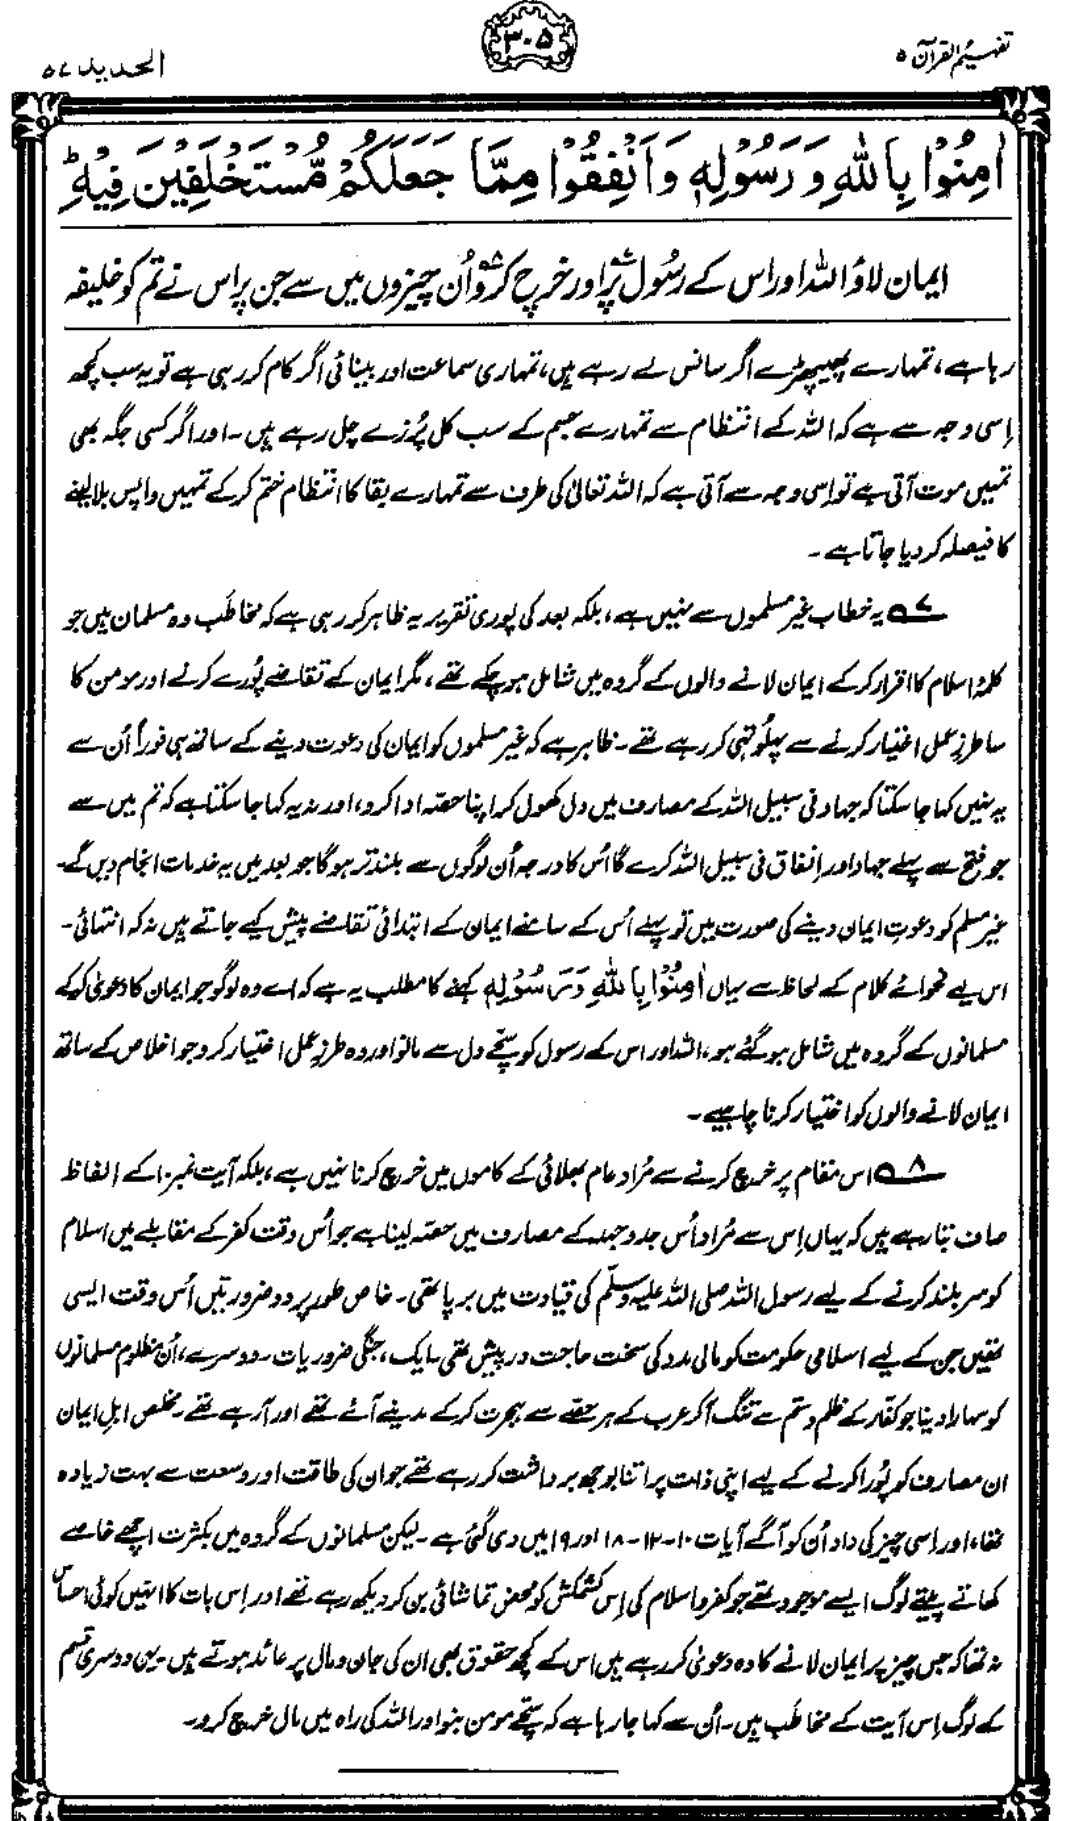 تفہیم القرآن ۵
۳۰۵
الحدید ۵۷
اٰمِنُوْا بِاللّٰهِ وَ رَسُوْلِهٖ وَ اَنْفِقُوْا مِمَّا جَعَلَكُمْ مُّسْتَخْلَفِیْنَ فِیْهِ ؕ
ایمان لاؤ اللہ اور اس کے رسُول پر۷؎ اور خرچ کرو۸؎ اُن چیزوں میں سے جن پر اس نے تم کو خلیفہ
رہا ہے، تمہارے پھیپھڑے اگر سانس لے رہے ہیں، تمہاری سماعت اور بینائی اگر کام کر رہی ہے تو یہ سب کچھ
اِسی وجہ سے ہے کہ اللہ کے انتظام سے تمہارے جسم کے سب کل پُرزے چل رہے ہیں۔ اور اگر کسی جگہ بھی
تمہیں موت آتی ہے تو اِسی وجہ سے آتی ہے کہ اللہ تعالیٰ کی طرف سے تمہارے بقا کا انتظام ختم کر کے تمہیں واپس بلا لینے
کا فیصلہ کر دیا جاتا ہے۔
۷؎ یہ خطاب غیر مسلموں سے نہیں ہے، بلکہ بعد کی پوری تقریر یہ ظاہر کر رہی ہے کہ مخاطَب وہ مسلمان ہیں جو
کلمۂ اسلام کا اقرار کر کے ایمان لانے والوں کے گروہ میں شامل ہو چکے تھے، مگر ایمان کے تقاضے پُورے کرنے اور مومن کا
سا طرزِ عمل اختیار کرنے سے پہلُو تہی کر رہے تھے۔ ظاہر ہے کہ غیر مسلموں کو ایمان کی دعوت دینے کے ساتھ ہی فوراً اُن سے
یہ نہیں کہا جا سکتا کہ جہاد فی سبیل اللہ کے مصارف میں دل کھول کر اپنا حصّہ ادا کرو، اور نہ یہ کہا جا سکتا ہے کہ تم میں سے
جو فتح سے پہلے جہاد اور اِنفاق فی سبیل اللہ کرے گا اُس کا درجہ اُن لوگوں سے بلند تر ہوگا جو بعد میں یہ خدمات انجام دیں گے۔
غیر مسلم کو دعوتِ ایمان دینے کی صورت میں تو پہلے اُس کے سامنے ایمان کے ابتدائی تقاضے پیش کیے جاتے ہیں نہ کہ انتہائی۔
اس لیے فحوائے کلام کے لحاظ سے یہاں اٰمِنُوْا بِاللّٰهِ وَرَسُوْلِهٖ کہنے کا مطلب یہ ہے کہ اے وہ لوگو جو ایمان کا دعویٰ کر کے
مسلمانوں کے گروہ میں شامل ہو گئے ہو، اللہ اور اس کے رسول کو سچّے دل سے مانو اور وہ طرزِ عمل اختیار کرو جو اخلاص کے ساتھ
ایمان لانے والوں کو اختیار کرنا چاہیے۔
۸؎ اس مقام پر خرچ کرنے سے مُراد عام بھلائی کے کاموں میں خرچ کرنا نہیں ہے، بلکہ آیت نمبر ۱۰ کے الفاظ
صاف بتا رہے ہیں کہ یہاں اِس سے مُراد اُس جدوجہد کے مصارف میں حصّہ لینا ہے جو اُس وقت کفر کے مقابلے میں اسلام
کو سر بلند کرنے کے لیے رسول اللہ صلی اللہ علیہ وسلّم کی قیادت میں برپا تھی۔ خاص طور پر دو ضرورتیں اُس وقت ایسی
تھیں جن کے لیے اسلامی حکومت کو مالی مدد کی سخت حاجت درپیش تھی۔ ایک، جنگی ضروریات۔ دوسرے، اُن مظلوم مسلمانوں
کو سہارا دینا جو کفّار کے ظلم و ستم سے تنگ آ کر عرب کے ہر حصّے سے ہجرت کر کے مدینے آئے تھے اور آ رہے تھے۔ مخلص اہلِ ایمان
ان مصارف کو پُورا کرنے کے لیے اپنی ذات پر اتنا بوجھ برداشت کر رہے تھے جو ان کی طاقت اور وسعت سے بہت زیادہ
تھا، اور اِسی چیز کی داد اُن کو آگے آیات ۱۰-۱۲-۱۸ اور ۱۹ میں دی گئی ہے۔ لیکن مسلمانوں کے گروہ میں بکثرت اچھے خاصے
کھاتے پیتے لوگ ایسے موجود تھے جو کفر و اسلام کی اِس کشمکش کو محض تماشائی بن کر دیکھ رہے تھے اور اِس بات کا انہیں کوئی احساس
نہ تھا کہ جس چیز پر ایمان لانے کا وہ دعویٰ کر رہے ہیں اس کے کچھ حقوق بھی ان کی جان و مال پر عائد ہوتے ہیں۔ یہی دوسری قسم
کے لوگ اِس آیت کے مخاطَب ہیں۔ اُن سے کہا جا رہا ہے کہ سچّے مومن بنو اور اللہ کی راہ میں مال خرچ کرو۔